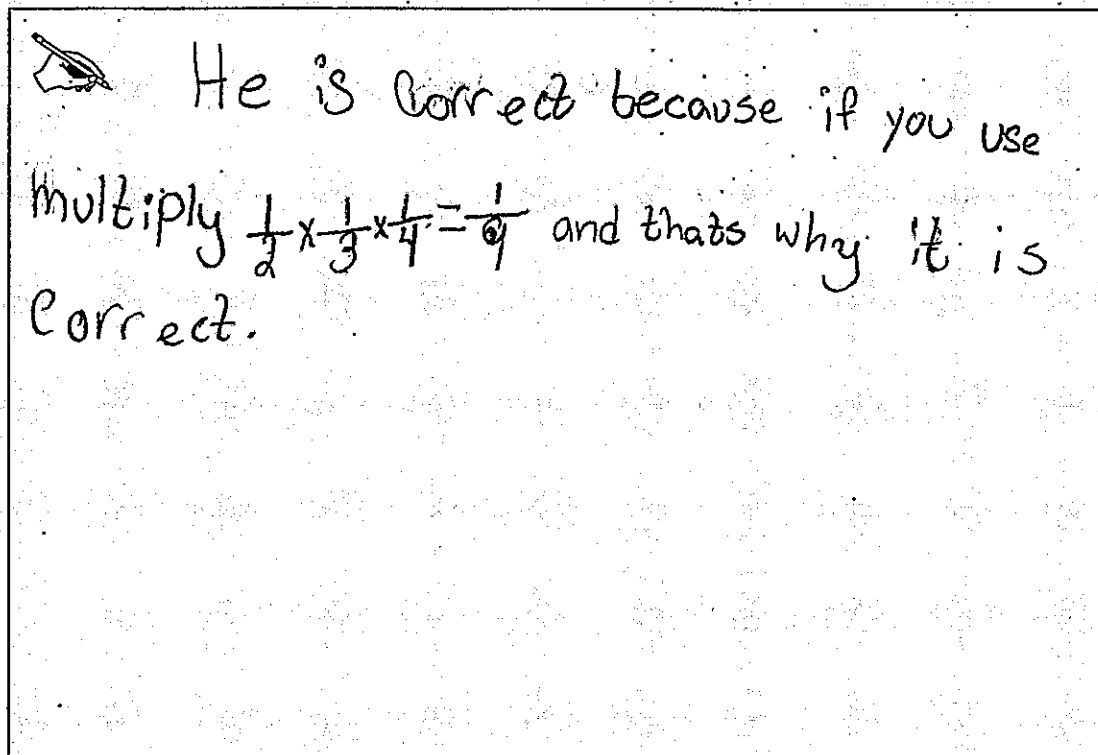 He is correct because if you use
multiply 1/2 x 1/3 x 1/4 = 1/9 and thats why it is
correct.